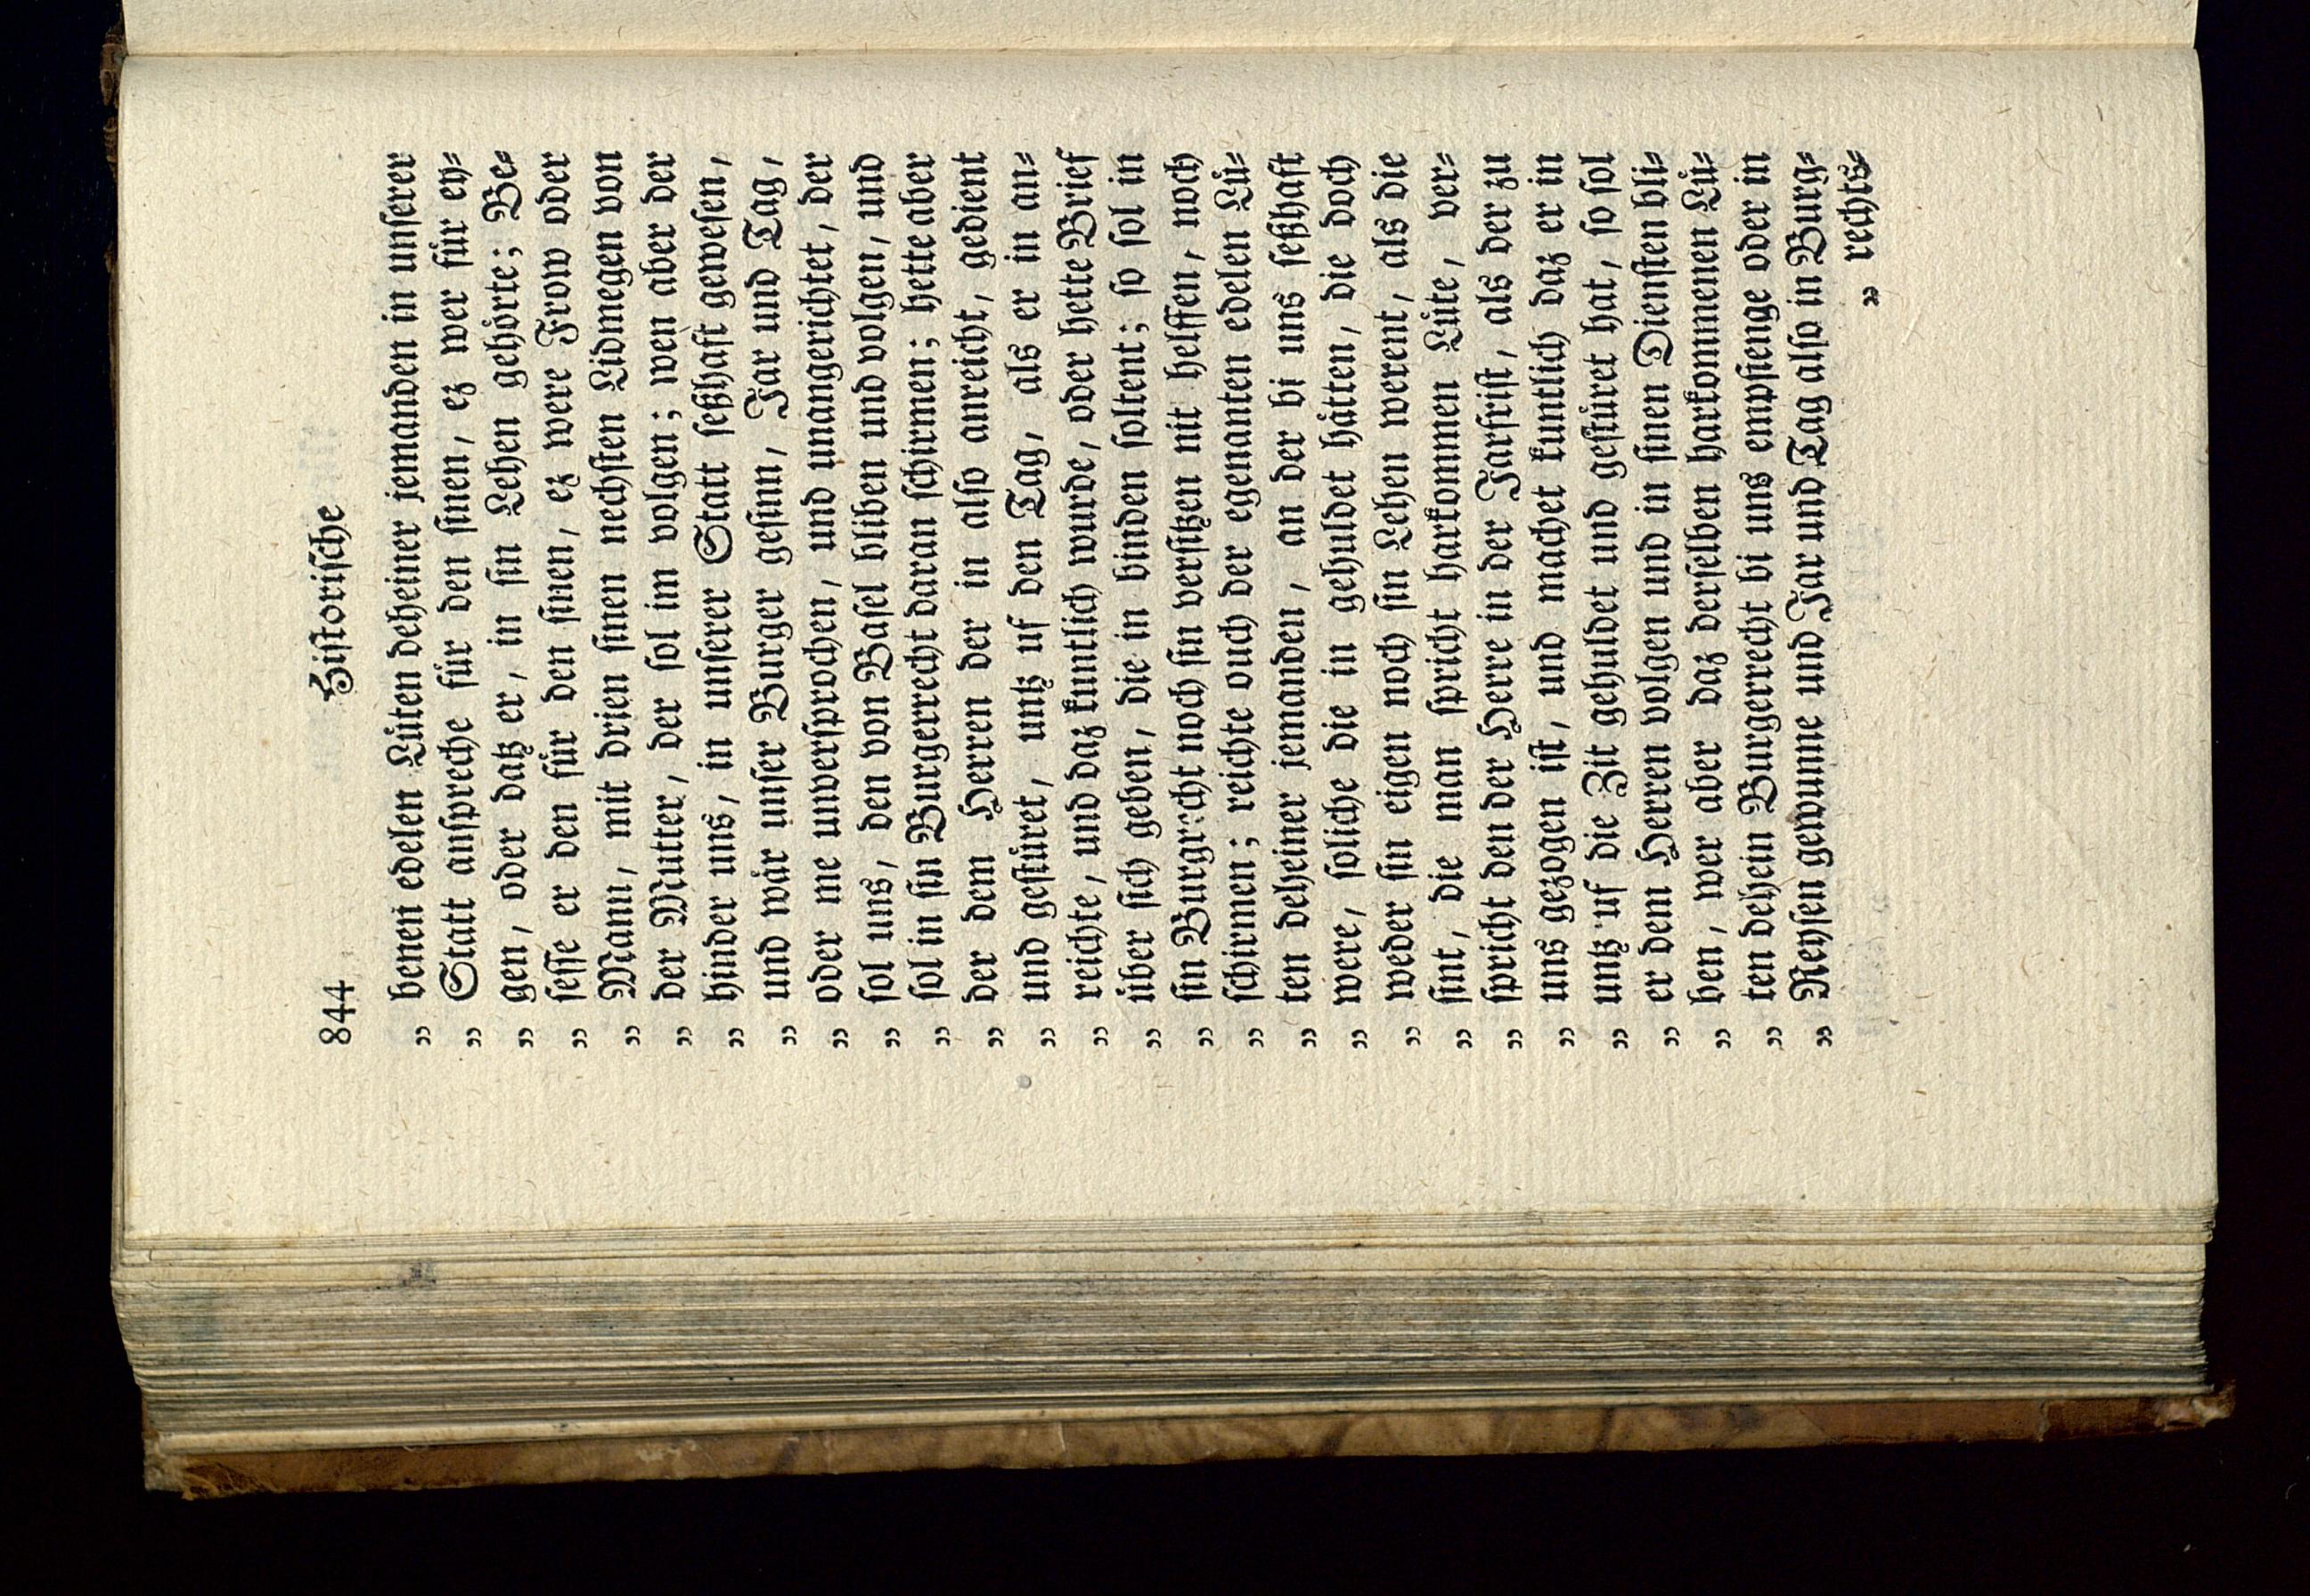 844 Hiſtoriſche
„ benen edelen Lüten deheiner jemanden in unſerer
„ Statt anſpreche für den ſinen, ez wer für ey⸗
„ gen, oder datz er, in ſin Lehen gehörte; Be⸗
„ ſeſſe er den für den ſinen, ez were Frow oder
„ Mann, mit drien ſinen nechſten Lidmegen von
„ der Mutter, der ſol im volgen; wen aber der
„ hinder uns, in unſerer Statt ſeßhaft geweſen,
„ und wår unſer Burger geſinn, Jar und Tag,
„ oder me unverſprochen, und unangerichtet, der
„ ſol uns, den von Baſel bliben und volgen, und
„ ſol in ſin Burgerrecht daran ſchirmen; hette aber
„ der dem Herren der in alſo anreicht, gedient
„ und geſtüret, untz uf den Tag, als er in an⸗
„ reichte, und daz kuntlich wurde, oder hette Brief
„ über ſich geben, die in binden ſoltent; ſo ſol in
„ ſin Burgrecht noch ſin verſitzen nit helffen, noch
„ ſchirmen; reichte ouch der egenanten edelen Lü⸗
„ ten deheiner jemanden, an der bi uns ſeßhaft
„ were, ſoliche die in gehuldet håtten, die doch
„ weder ſin eigen noch ſin Lehen werent, als die
„ ſint, die man ſpricht harkommen Lüte, ver⸗
„ ſpricht den der Herre in der Jarfriſt, als der zu
„ uns gezogen iſt, und machet kuntlich daz er in
„ untz uf die Zit gehuldet und geſtüret hat, ſo ſol
„ er dem Herren volgen und in ſinen Dienſten bli⸗
„ ben, wer aber daz derſelben harkommenen Lü⸗
„ ten dehein Burgerrecht bi uns empfienge oder in
„ Reyſen gewunne und Jar und Tag alſo in Burg⸗
„ rechts⸗